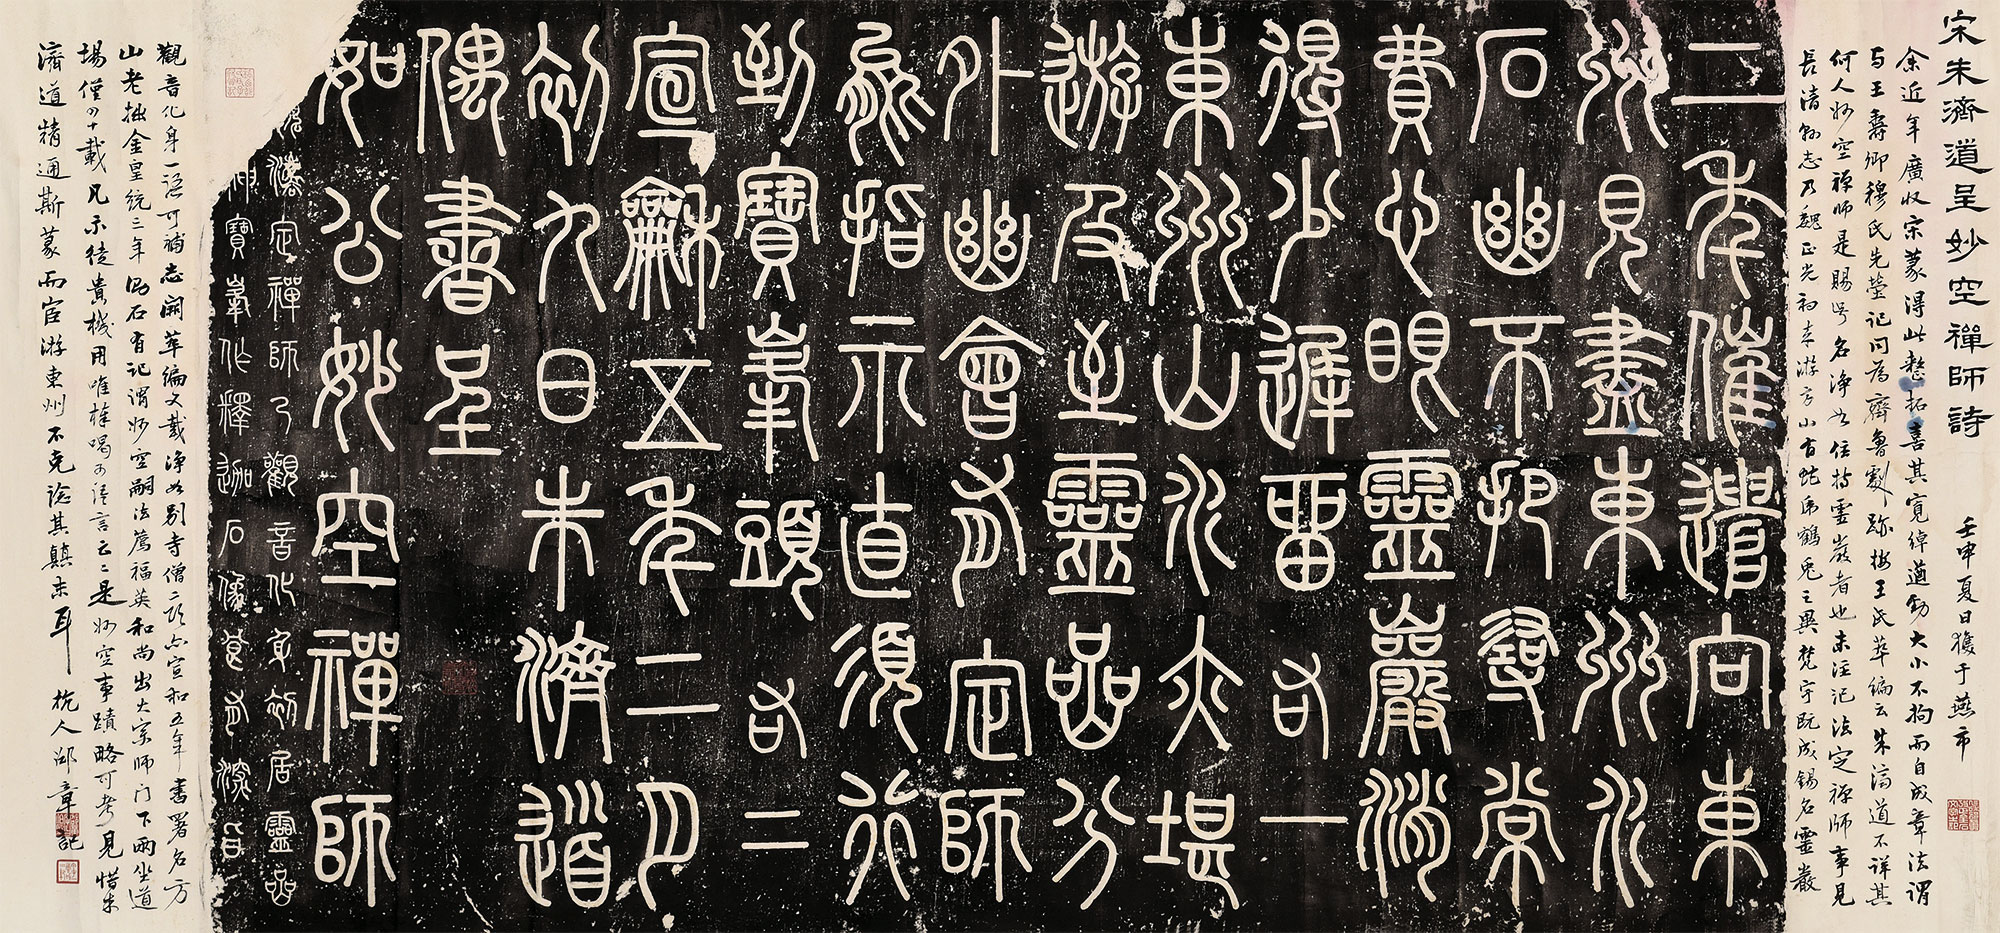 宋朱濟道呈妙空禪師詩
壬申夏日獲于燕市
余近年廣收宋篆得此整拓喜其寬綽遒勁大小不拘而自成章法謂
与王壽卿穆氏先塋記同為齊魯劇跡按王氏萃編云朱濟道不詳其
何人妙空禪師是賜号名淨如住持靈巖者也未注記法定禪師事見
長清縣志乃魏正光初來游方山有蛇虎鶴兔之異梵宇既成錫名靈巖
二年催遣向東
州見盡東州水
石幽不把尋常
費心眼靈巖消
得少遲留 右一
東州山水亦堪
遊及至靈嵒分
外幽會有定師
為指示直須行
到寶峯頭 右二
宣龢五年二月
初九日朱濟道
偶書呈
如公妙空禪師
法定禪師乃觀音化身初居靈嵒
神寶峯作釋迦石像莫有深旨
觀音化身一語可補志闕萃編又載淨如別寺僧二頌亦宣和五年書署名方
山老拙金皇統三年石有記謂妙空嗣法薦福英和尚出大宗師门下兩坐道
場僅四十載凡示徒貴機用唯棒喝少語言云云是妙空事蹟略可考見惜朱
濟道精通斯篆而宦游東州不克諗其顛末耳 杭人邵章記